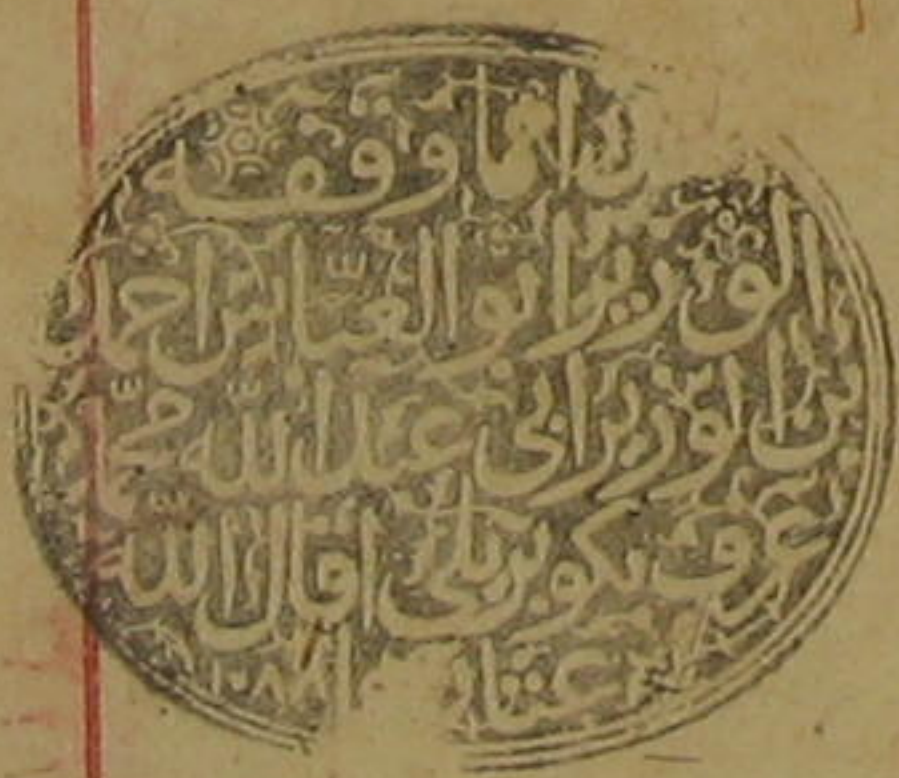 هذا مما وقفه
الوزير ابو العباس احمد
بن الوزير ابى عبد الله محمد
عرف بكوبريلى اقال الله
عثار
١٠٨٨